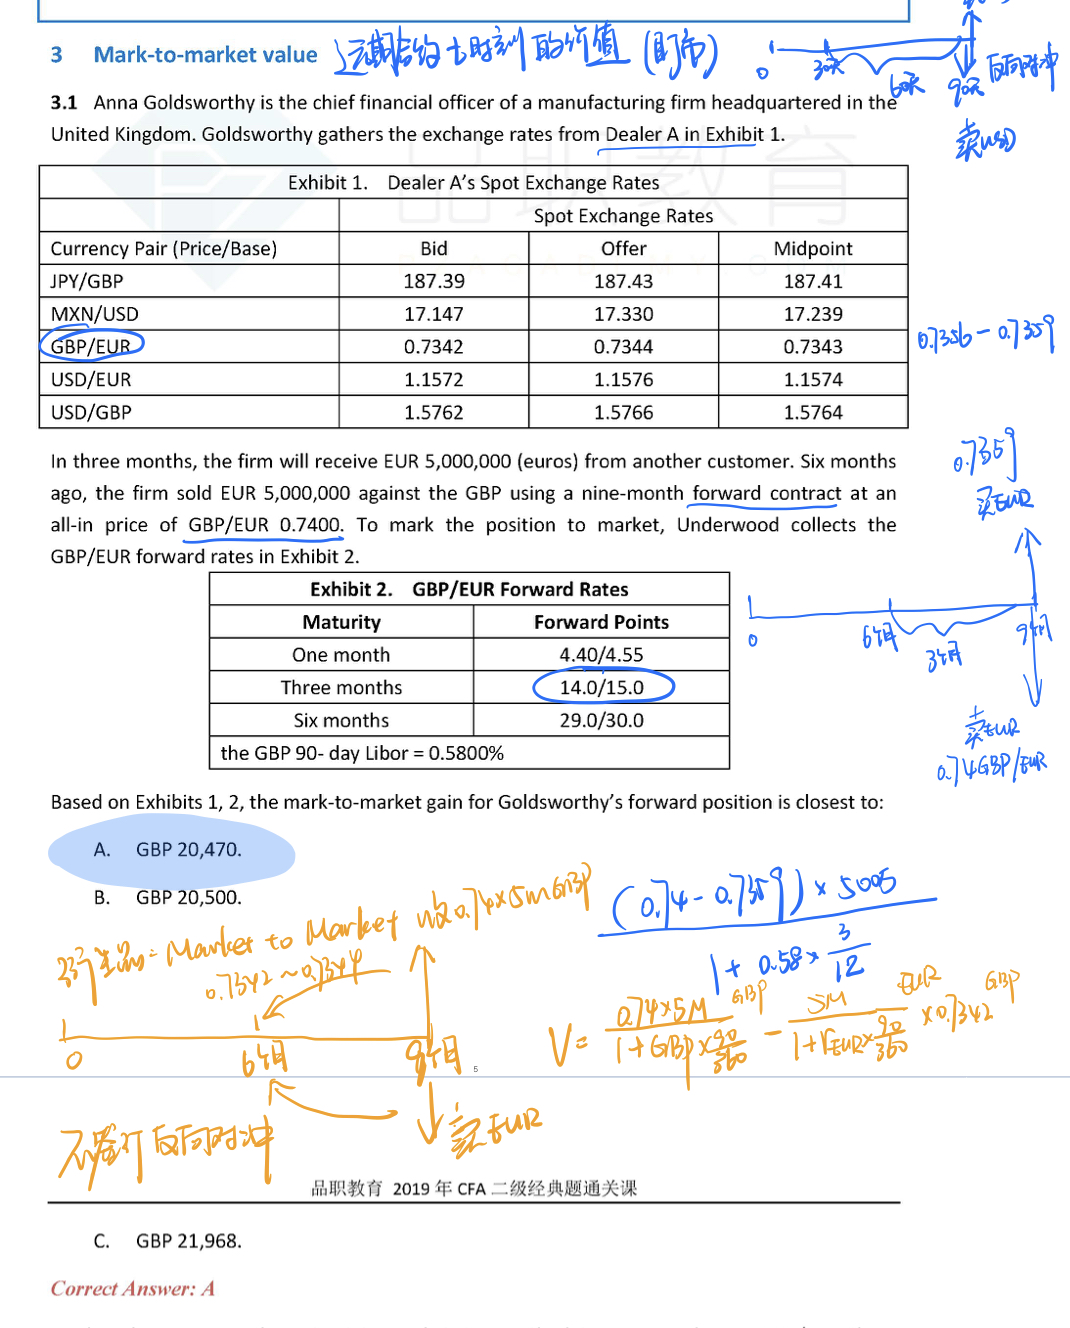 3 Mark-to-market value 远期合约t时刻的价值（盯市）
0 30天 60天 90天 反向对冲
卖USD
3.1 Anna Goldsworthy is the chief financial officer of a manufacturing firm headquartered in the
United Kingdom. Goldsworthy gathers the exchange rates from Dealer A in Exhibit 1.
Exhibit 1. Dealer A's Spot Exchange Rates
Spot Exchange Rates
Currency Pair (Price/Base) Bid Offer Midpoint
JPY/GBP 187.39 187.43 187.41
MXN/USD 17.147 17.330 17.239
GBP/EUR 0.7342 0.7344 0.7343 0.7356-0.7359
USD/EUR 1.1572 1.1576 1.1574
USD/GBP 1.5762 1.5766 1.5764
In three months, the firm will receive EUR 5,000,000 (euros) from another customer. Six months
ago, the firm sold EUR 5,000,000 against the GBP using a nine-month forward contract at an
all-in price of GBP/EUR 0.7400. To mark the position to market, Underwood collects the
GBP/EUR forward rates in Exhibit 2.
0.7359
买EUR
Exhibit 2. GBP/EUR Forward Rates
Maturity Forward Points
One month 4.40/4.55
Three months 14.0/15.0
Six months 29.0/30.0
the GBP 90- day Libor = 0.5800%
0 6个月 3个月 9个月
卖EUR
0.74GBP/EUR
Based on Exhibits 1, 2, the mark-to-market gain for Goldsworthy's forward position is closest to:
A. GBP 20,470.
B. GBP 20,500.
(0.74-0.7359)×500万
1+0.58×3/12
衍生品: Market to Market 收0.74×5mGBP
0.7342~0.7344
0 6个月 9个月
V= 0.74×5M GBP / 1+GBP×90/360 - 5M EUR / 1+rEUR×90/360 ×0.7342 GBP
5
不签订反向对冲
卖EUR
品职教育 2019 年 CFA 二级经典题通关课
C. GBP 21,968.
Correct Answer: A